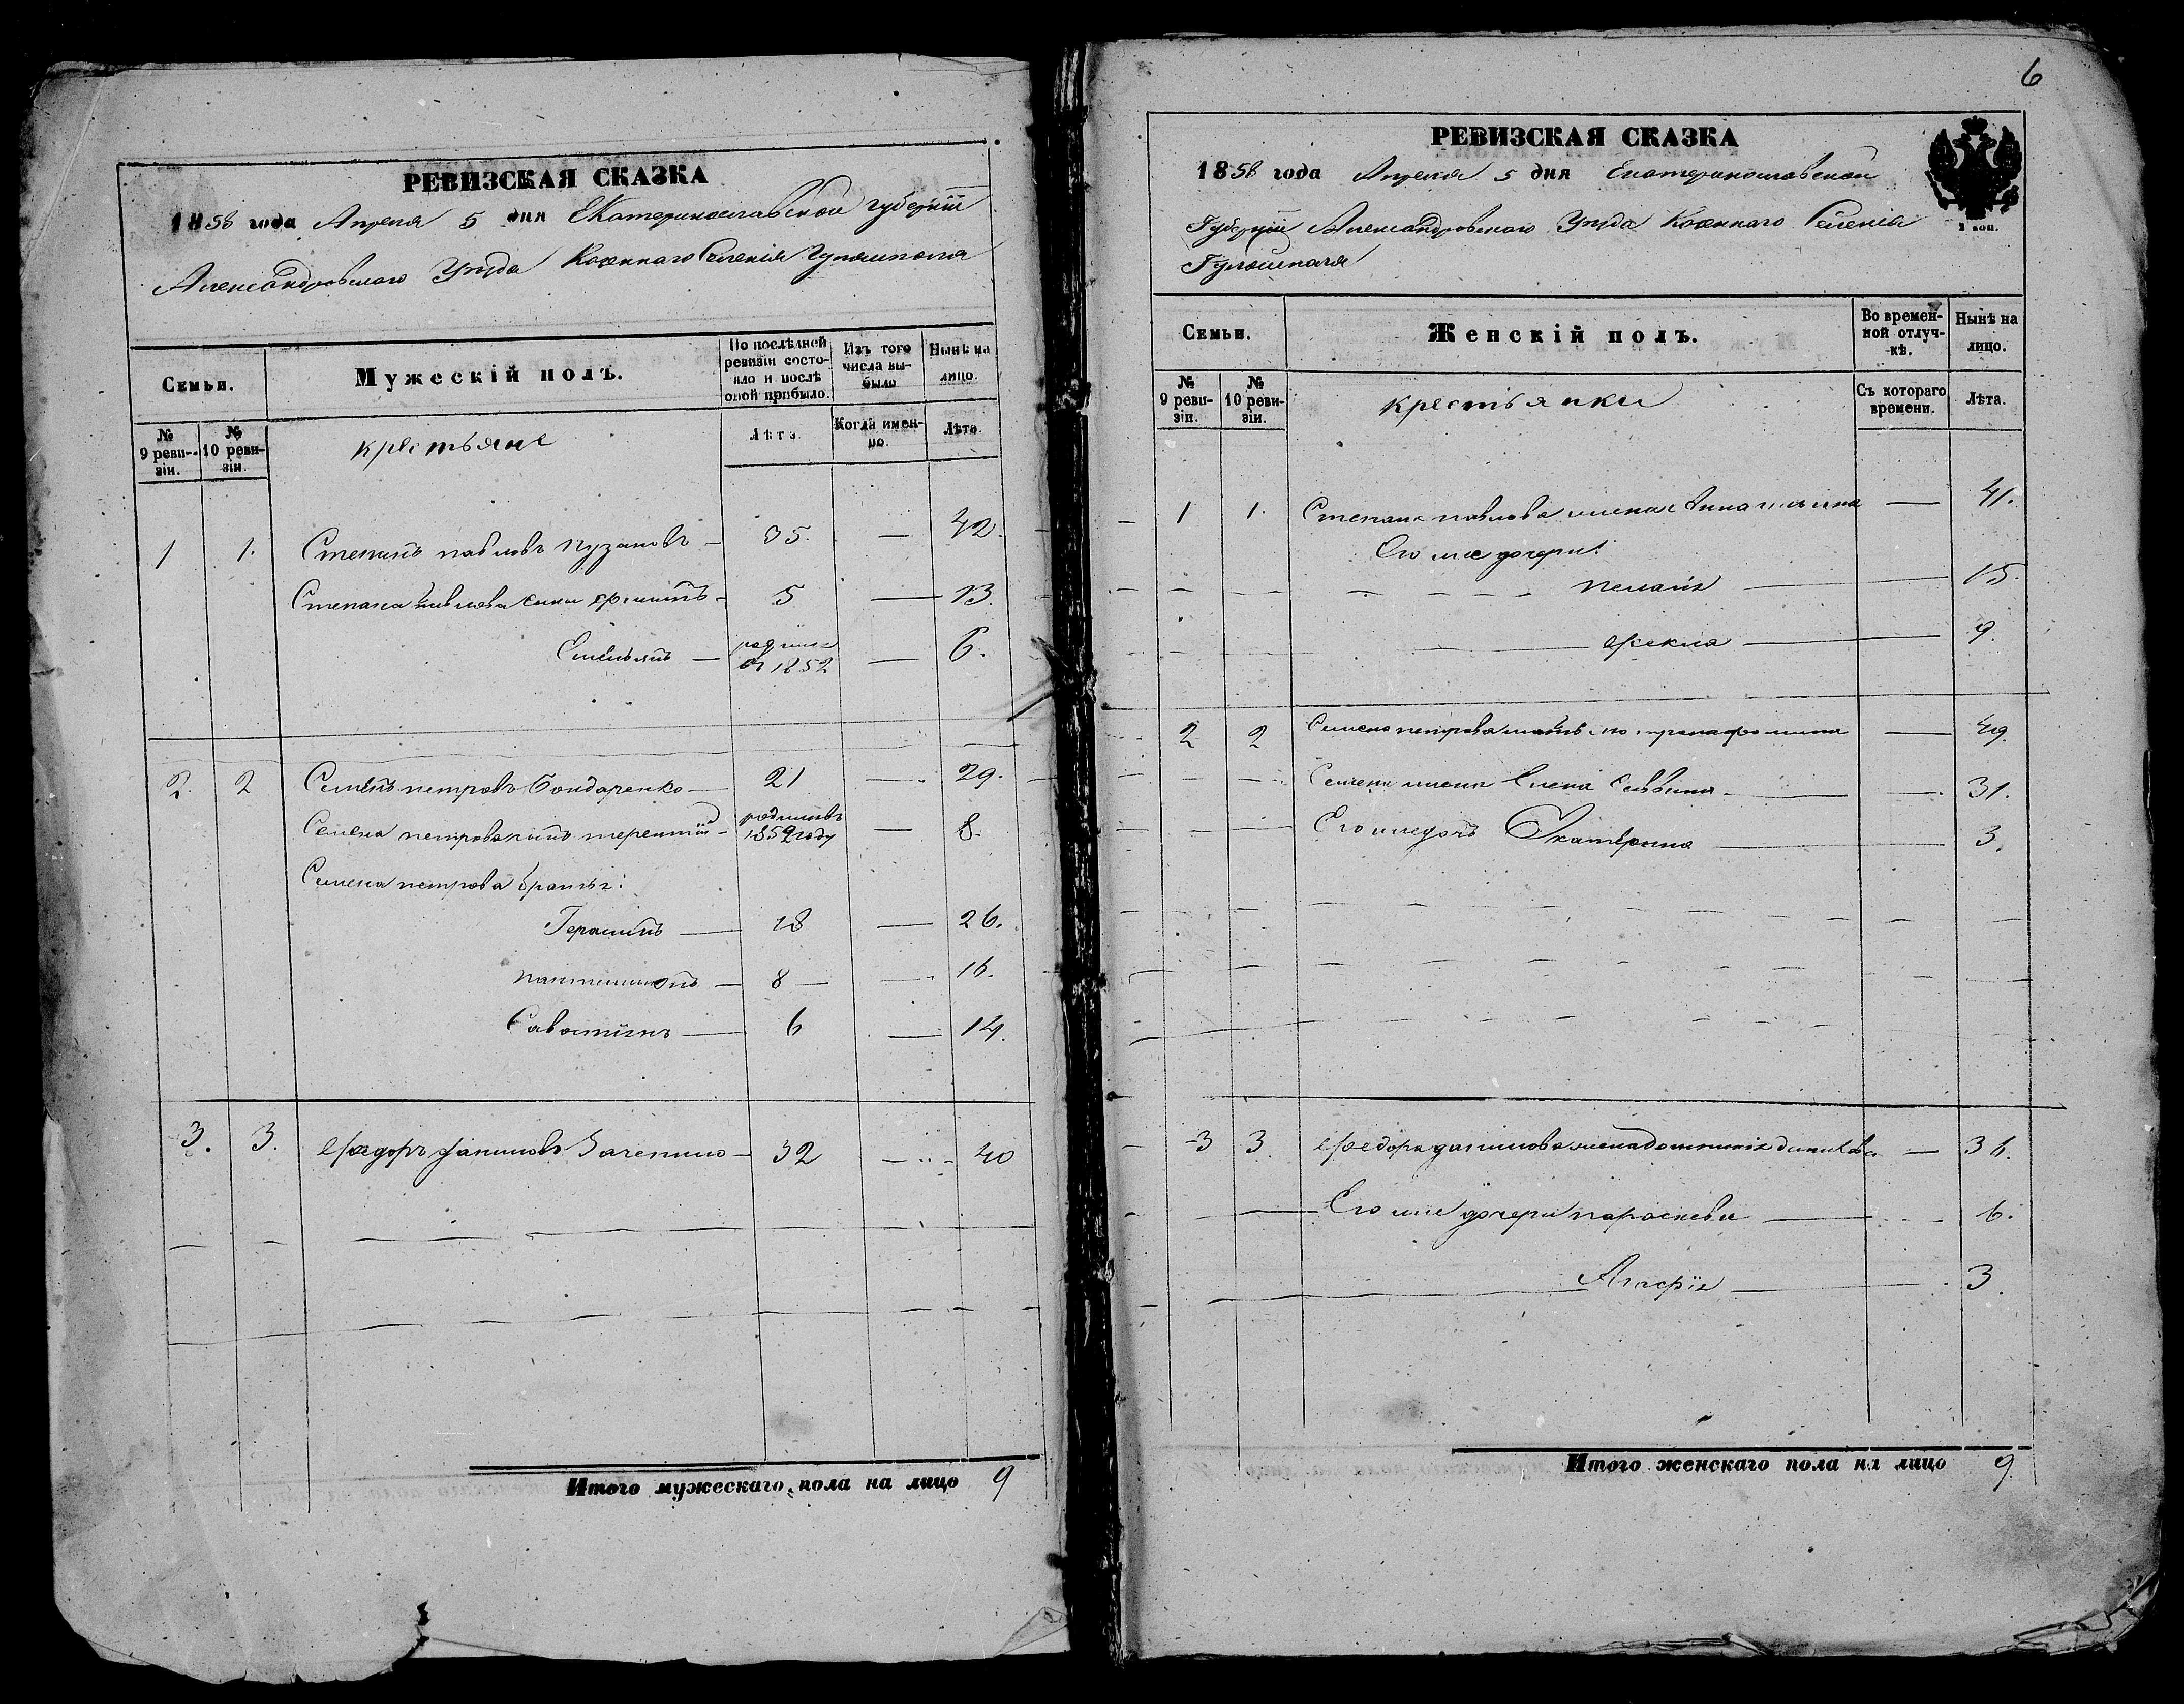 РЕВИЗСКАЯ СКАЗКА
1858 года Апреля 5 дня Екатеринославской губернiи
Александровского Уѣзда Казеннаго Селенiя Гуляйполя
Семьи.
Мужескiй полъ.
По послѣдней ревизiи состояло и послѣ оной прибыло.
Изъ того числа выбыло
Нынѣ на лицо.
№ 9 ревизiи.
№ 10 ревизiи.
крестьяне
Лѣта.
Когда именно.
Лѣта.
1 1. Степанъ павловъ пузановъ — 35. — 42.
Степана павлова сыны — 5 — 13.
Емельянъ — родился въ 1852 — 6.
2. 2 Семенъ петровъ Бондаренко — 21 — 29.
Семена петрова сынъ терентiй — родился въ году — 8.
Семена петрова братья:
Герасимъ — 18 — 26.
пантелимонъ — 8 — — 16.
Савостiянъ — 6 — 14.
3. 3. Федоръ даниловъ — 32 — 40
Итого мужескаго пола на лицо 9
6
РЕВИЗСКАЯ СКАЗКА
1858 года Апреля 5 дня Екатеринославской
Губернiи Александровского Уѣзда Казеннаго Селенiя
Гуляйполя
1 коп.
Семьи.
Женскiй полъ.
Во временной отлучкѣ.
Нынѣ на лицо.
№ 9 ревизiи.
№ 10 ревизiи.
крестьянки
Съ котораго времени.
Лѣта.
1 1. Степана павлова жена Анна — 41.
Его же дочери:
пелагiя — 15.
Фекла — 9.
2 2 Семена петрова мать — 49.
Семена жена Елена — 31.
Его же дочь Екатерина — 3.
3 3. Федора данилова жена данилова — 36.
Его же дочери параскева — 6.
Агафiя — 3.
Итого женскаго пола на лицо 9.